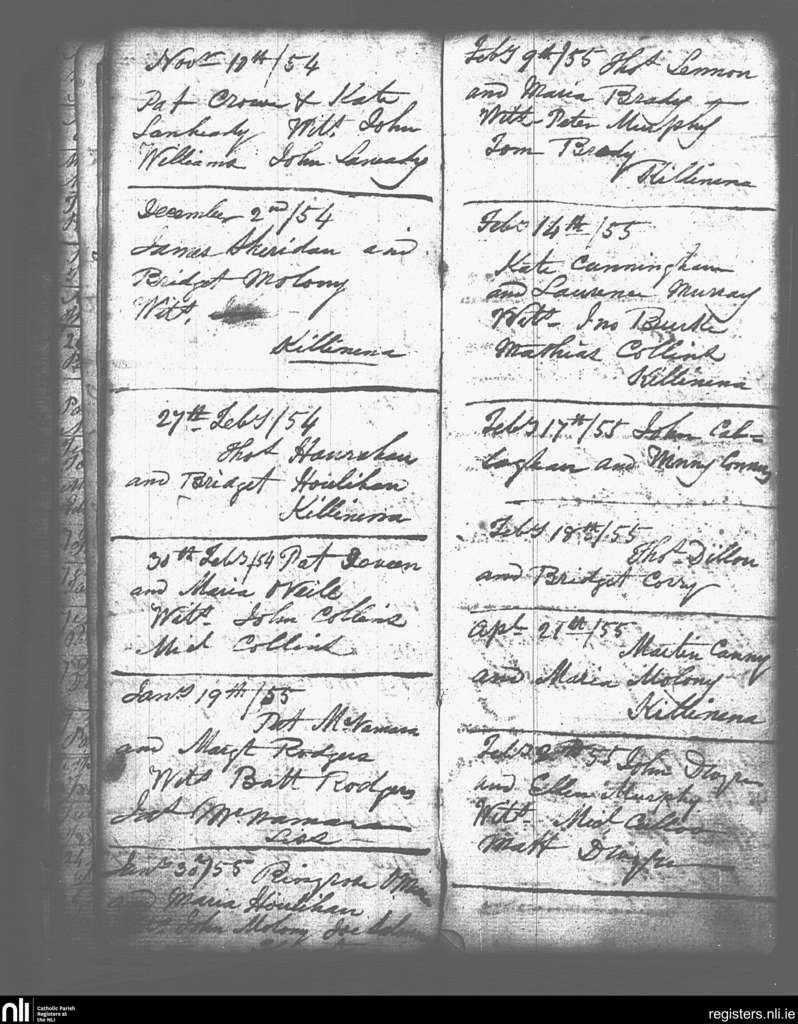 Novr 12th/54
Pat Crowe & Kate
Lanheady Witt. John
Williams John Laneady
December 2nd/54
James Sheridan and
Bridget Molony
Witt.
Killinena
27th Feby/54
Thos Hanrahan
and Bridget Houlihan
Killinena
30th Feby/54 Pat
and Maria O'Neile
Witts. John Collins
Micl Collins
Jany 19th/55
Pat McNamara
and Margt Rodgers
Witts Batt Rodgers
McNamara
Liss
Jany 30th/55 Ringrose
and Maria Houlihan
John Molony
Feby 9th/55 Thos Lennon
and Maria Brady
Witts Peter Murphy
Tom Brady
Killinena
Feby 14th/55
Kate Cunningham
and Laurence Murray
Witts Jno Burke
Mathias Collins
Killinena
Feby 17th/55 John Cal=
laghan and
Feby 18th/55
Thos Dillon
and Bridget Corry
Apl 21th/55
Martin Canny
and Maria Molony
Killinena
Feby 55 John Dwyer
and Ellen Murphy
Witts. Micl
Matt Dwyer
nli
Catholic Parish
Registers at
the NLI
registers.nli.ie